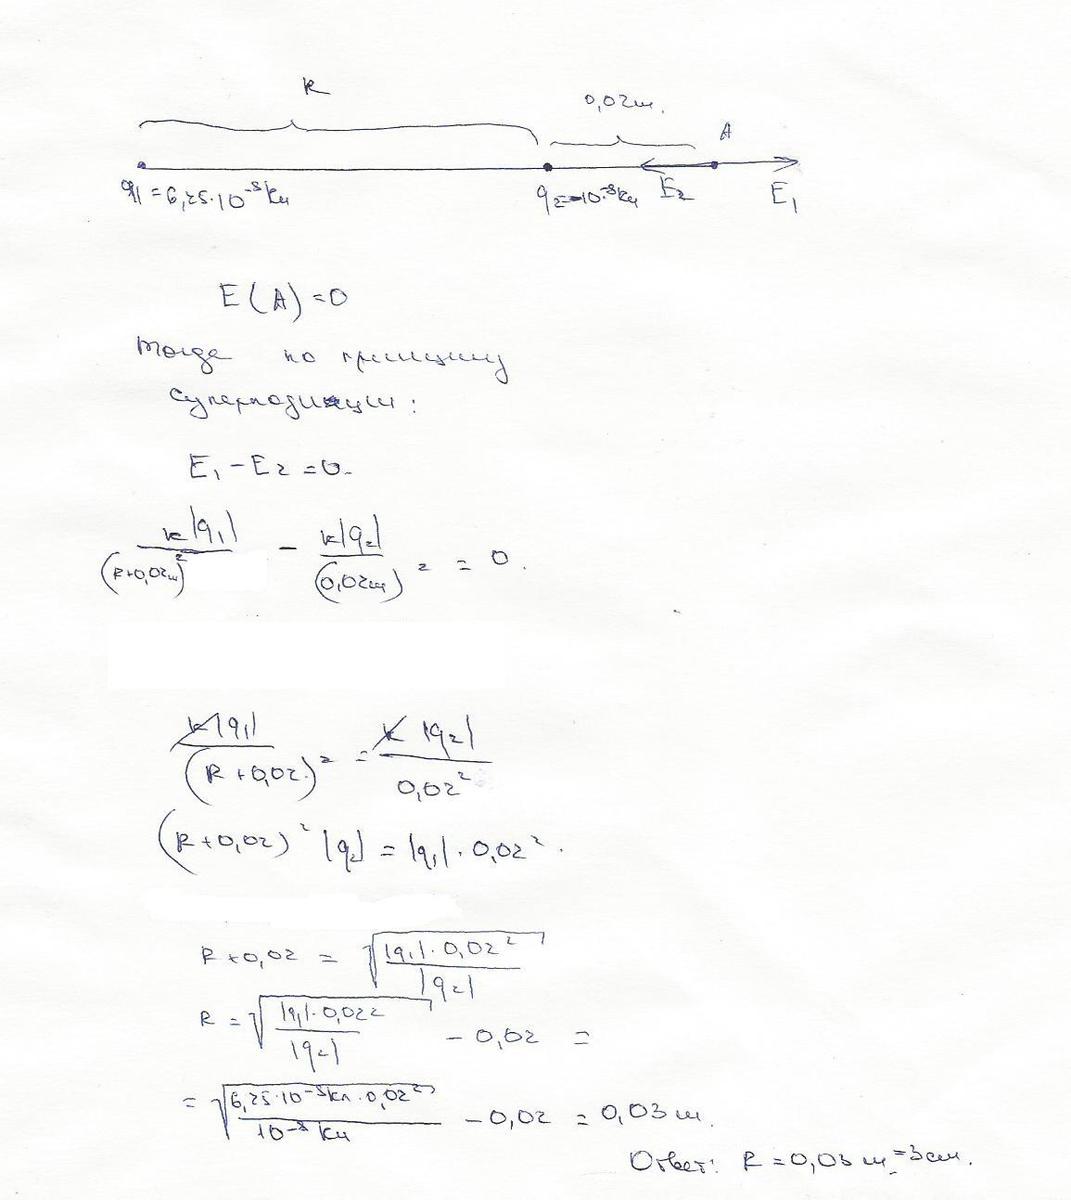 R
0,02м.
A
q1 = 6,25·10⁻⁸Кл
q2=-10⁻⁸Кл
E2
E1
E(A)=0
Тогда по принципу
суперпозиции:
E1 - E2 = 0.
k|q1| / (R+0,02м)² - k|q2| / (0,02м)² = 0.
k|q1| / (R+0,02)² = k|q2| / 0,02²
(R+0,02)² |q2| = |q1| · 0,02².
R+0,02 = √(|q1|·0,02² / |q2|)
R = √(|q1|·0,02² / |q2|) - 0,02 =
= √(6,25·10⁻⁸Кл·0,02² / 10⁻⁸Кл) - 0,02 = 0,03 м.
Ответ: R = 0,03 м =3см.